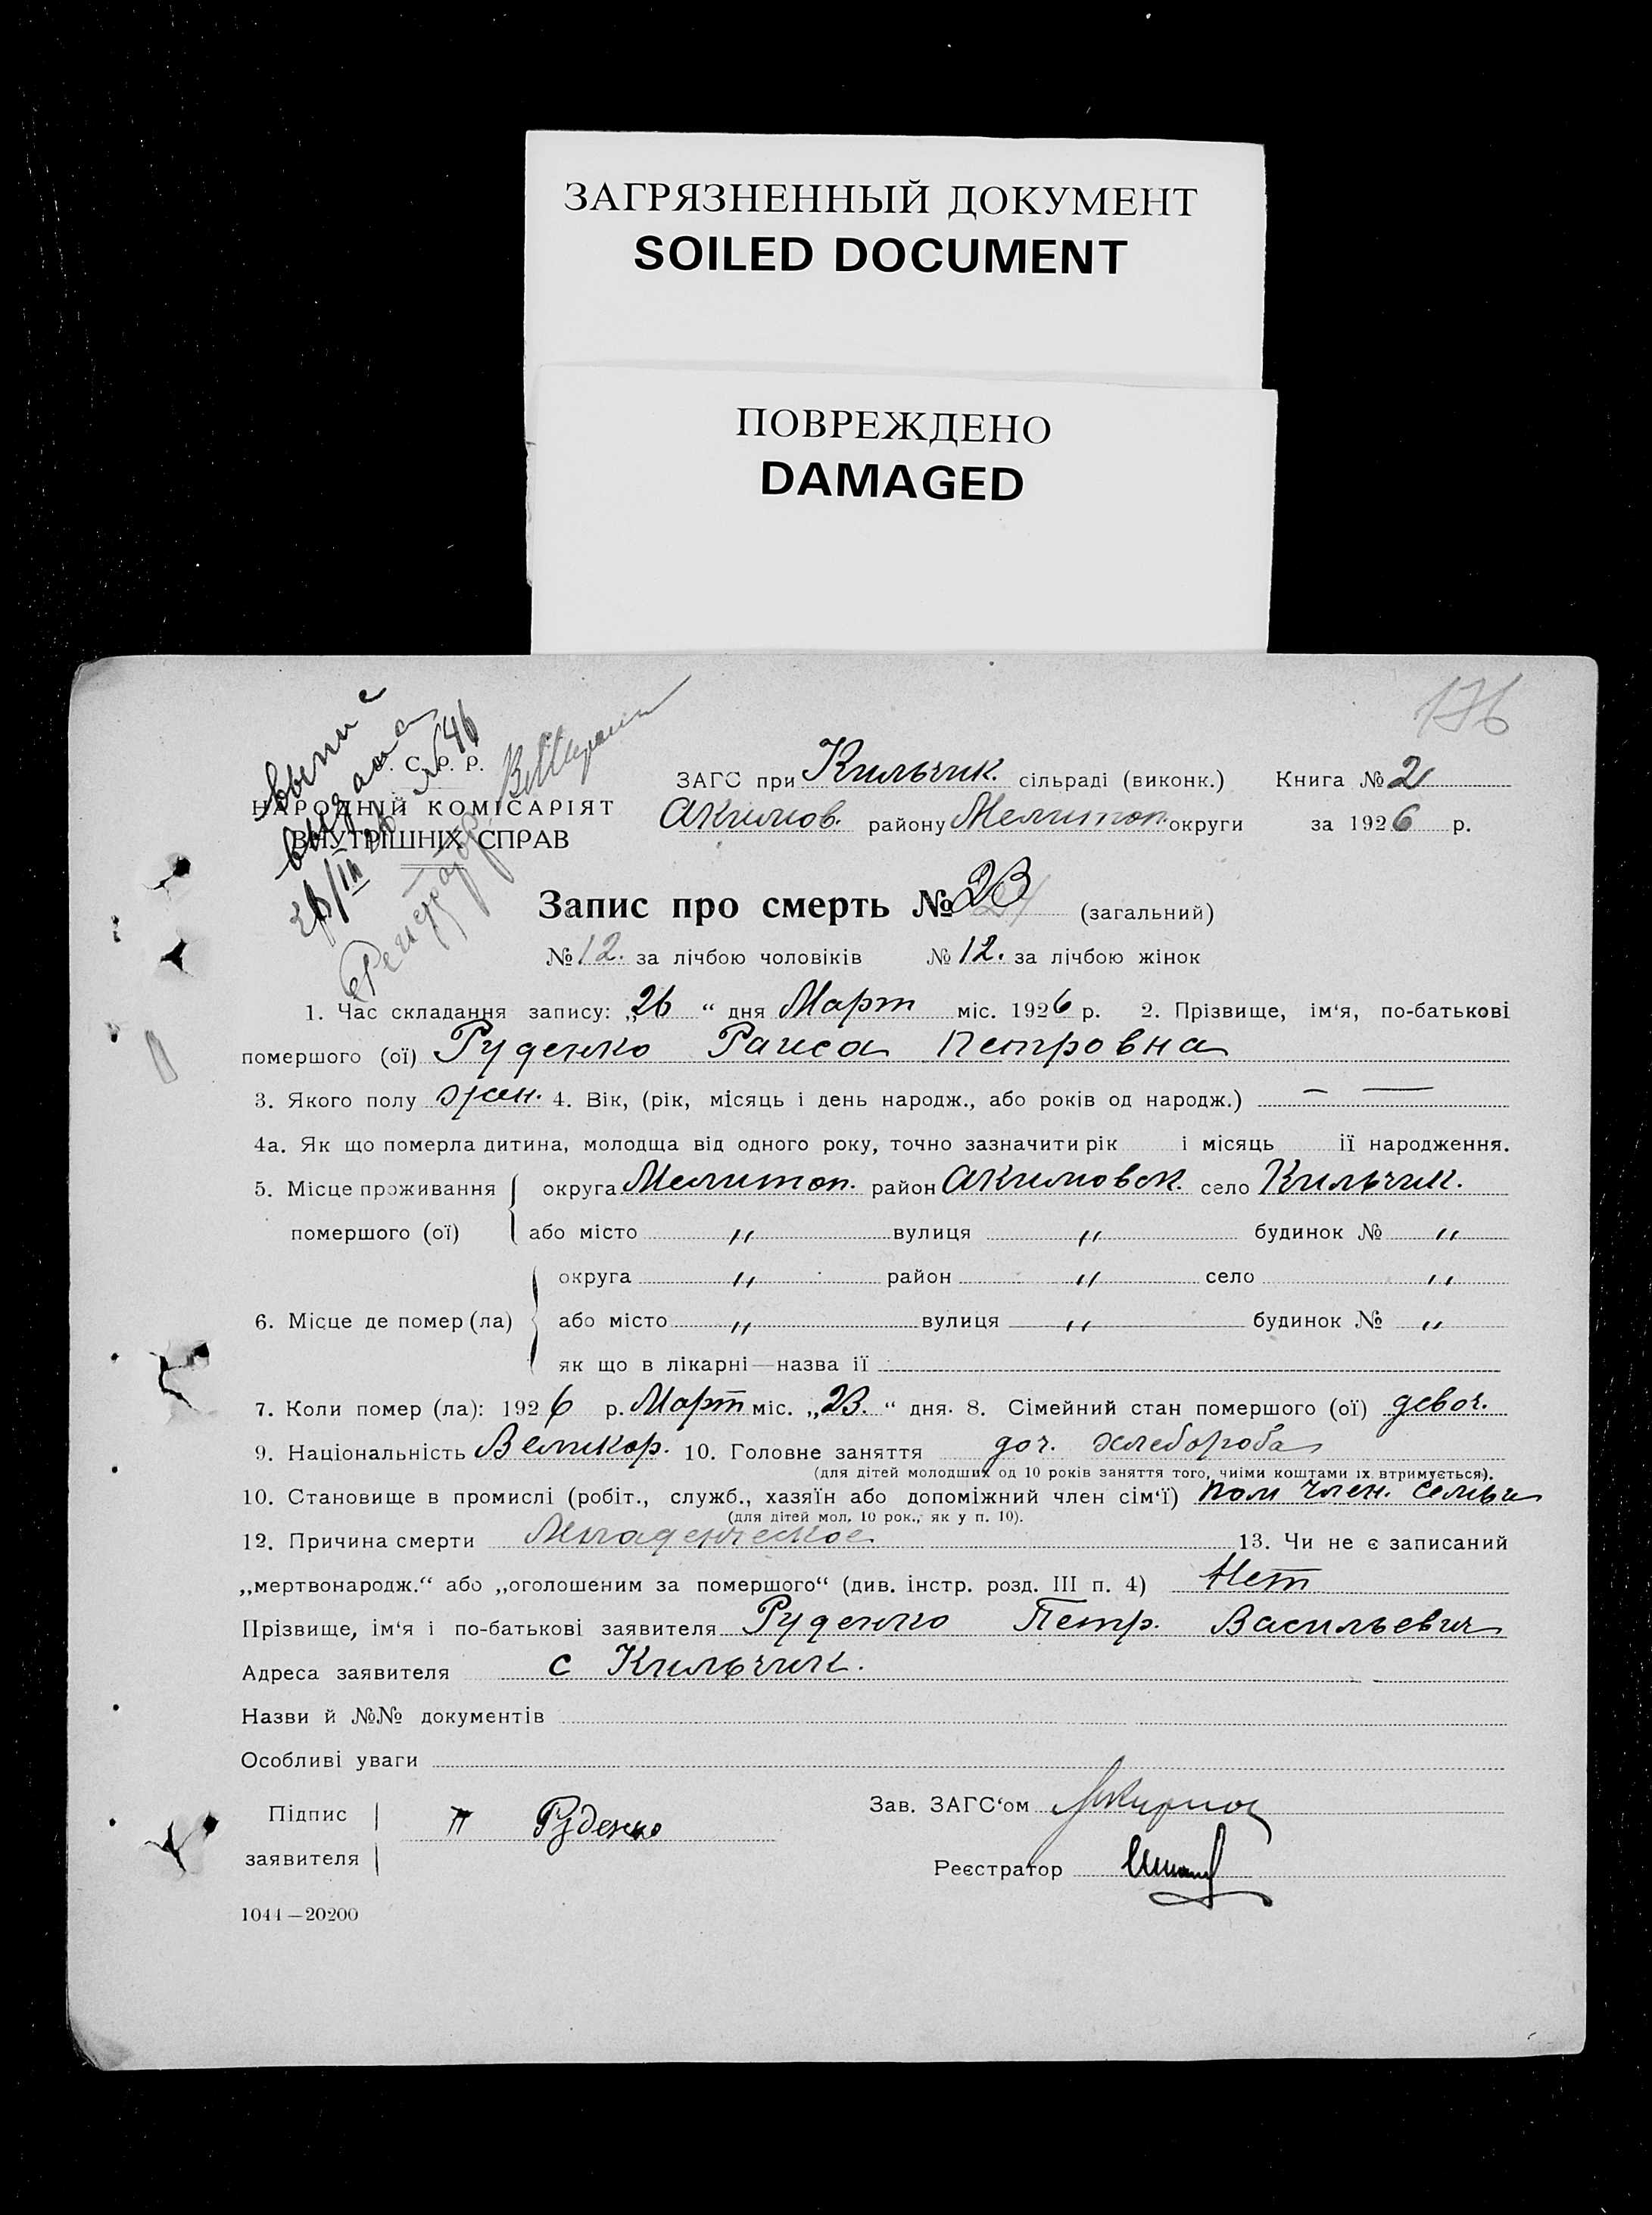 ЗАГРЯЗНЕННЫЙ ДОКУМЕНТ
SOILED DOCUMENT
ПОВРЕЖДЕНО
DAMAGED
176
выпис
выдана
26/III 26 №46
. С. Р. Р.
НАРОДНІЙ КОМІСАРІЯТ
ВНУТРІШНІХ СПРАВ
ЗАГС при Кильчик. сільраді (виконк.) Книга № 2
Акимов. району Мелитоп. округи за 1926 р.
Запис про смерть № 23 (загальний)
№ 12. за лічбою чоловіків № 12. за лічбою жінок
1. Час складання запису: „26“ дня Март міс. 1926 р. 2. Прізвище, ім‘я, по-батькові
помершого (ої) Руденко Раиса Петровна
3. Якого полу жен. 4. Вік, (рік, місяць і день народж., або років од народж.) — —
4а. Як що померла дитина, молодща від одного року, точно зазначити рік і місяць її народження.
5. Місце проживання округа Мелитоп. район Акимовск. село Кильчик.
помершого (ої) або місто " вулиця " будинок № "
округа " район " село "
6. Місце де помер (ла) або місто " вулиця " будинок № "
як що в лікарні—назва її
7. Коли помер (ла): 1926 р. Март міс. „23.“ дня. 8. Сімейний стан помершого (ої) девоч.
9. Національність Великор. 10. Головне заняття доч. хлебороба
(для дітей молодших од 10 років заняття того, чиїми коштами їх втримується).
10. Становище в промислі (робіт., служб., хазяїн або допоміжний член сім‘ї) пом член. семьи
(для дітей мол. 10 рок., як у п. 10).
12. Причина смерти Младенческое 13. Чи не є записаний
„мертвонародж.“ або „оголошеним за помершого“ (див. інстр. розд. III п. 4) Нет
Прізвище, ім‘я і по-батькові заявителя Руденко Петр. Васильевич
Адреса заявителя с Кильчик.
Назви й №№ документів
Особливі уваги
Підпис П Руденко Зав. ЗАГС‘ом
заявителя Реєстратор
1044—20200